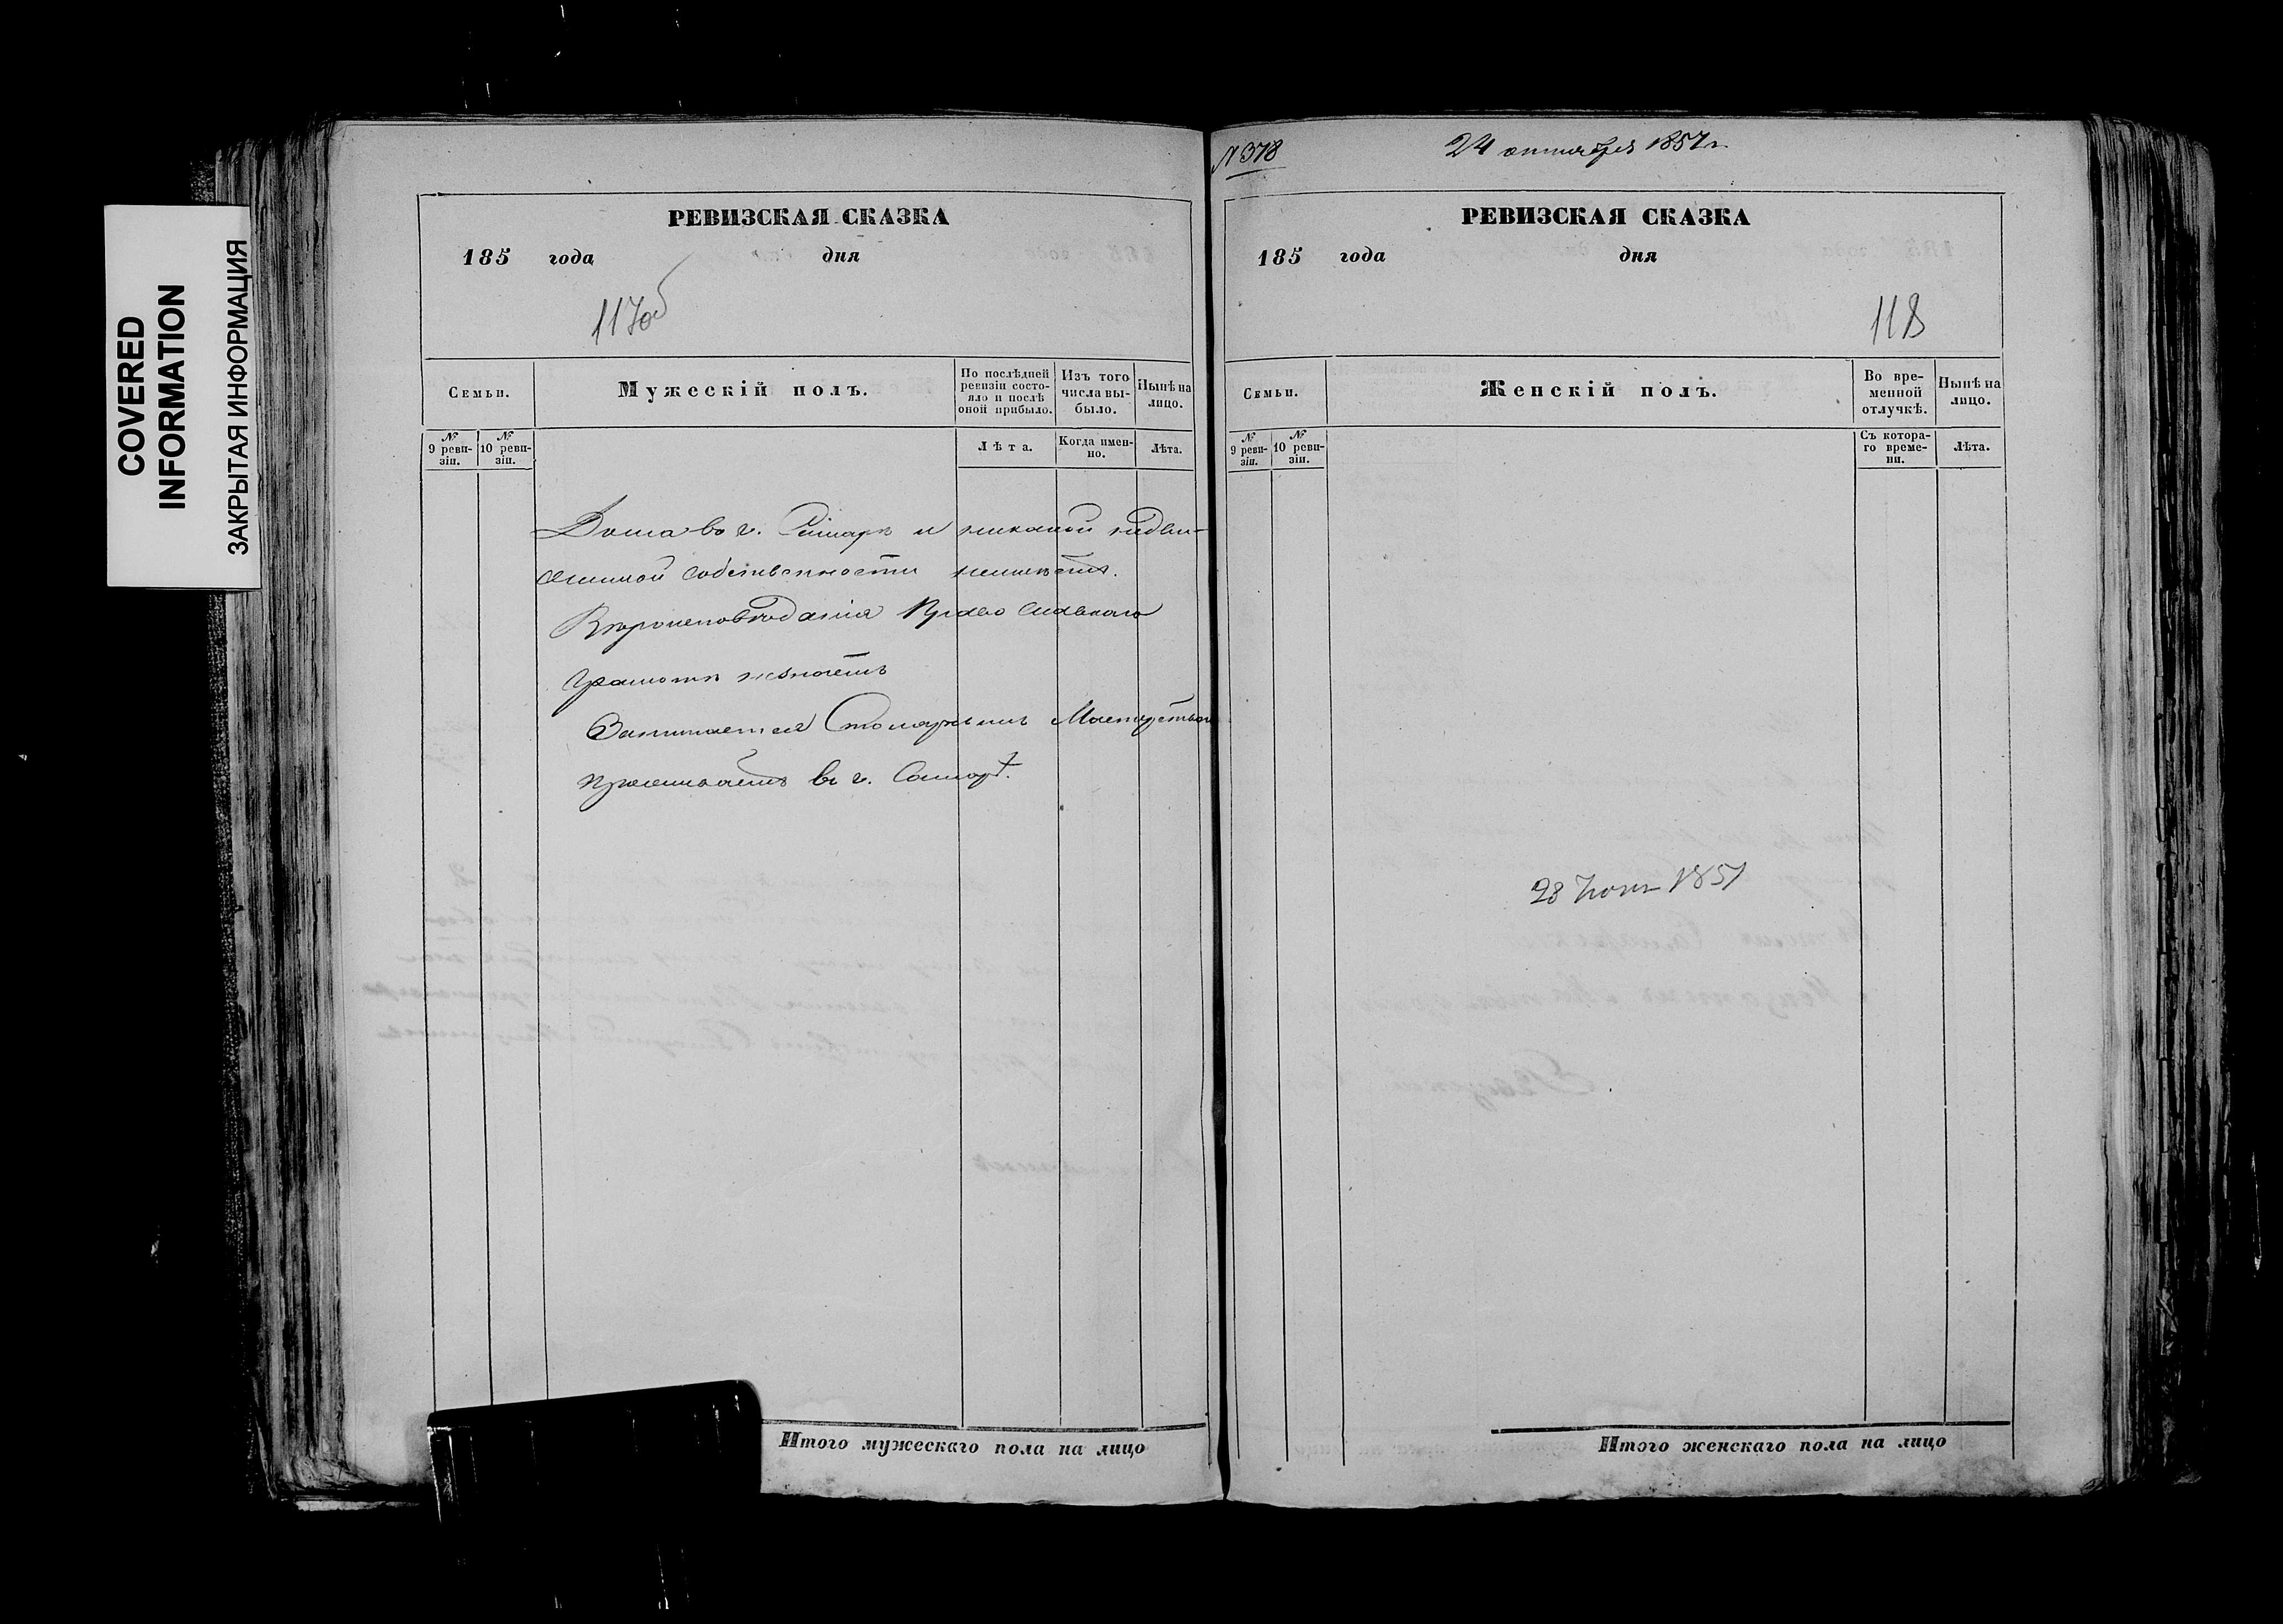 COVERED
INFORMATION
ЗАКРЫТАЯ ИНФОРМАЦИЯ
РЕВИЗСКАЯ СКАЗКА
185 года дня
117об
Семьи.
Мужескій полъ.
По послѣдней ревизіи состояло и послѣ оной прибыло.
Изъ того числа выбыло.
Нынѣ на лицо.
№ 9 ревизіи.
№ 10 ревизіи.
Лѣта.
Когда именно.
Лѣта.
Дома въ г. Самарѣ и никакой недви-
жимой собственности неимѣетъ.
Вѣроисповѣданія Православнаго
Грамотѣ незнаетъ
Занимается Столярнымъ Мастерством
проживаетъ въ г. Самарѣ.
Итого мужескаго пола на лицо
№ 378
24 октября 1857 г.
РЕВИЗСКАЯ СКАЗКА
185 года дня
118
Семьи.
Женскій полъ.
Во временной отлучкѣ.
Нынѣ на лицо.
№ 9 ревизіи.
№ 10 ревизіи.
Съ котораго времени.
Лѣта.
28 1857
Итого женскаго пола на лицо